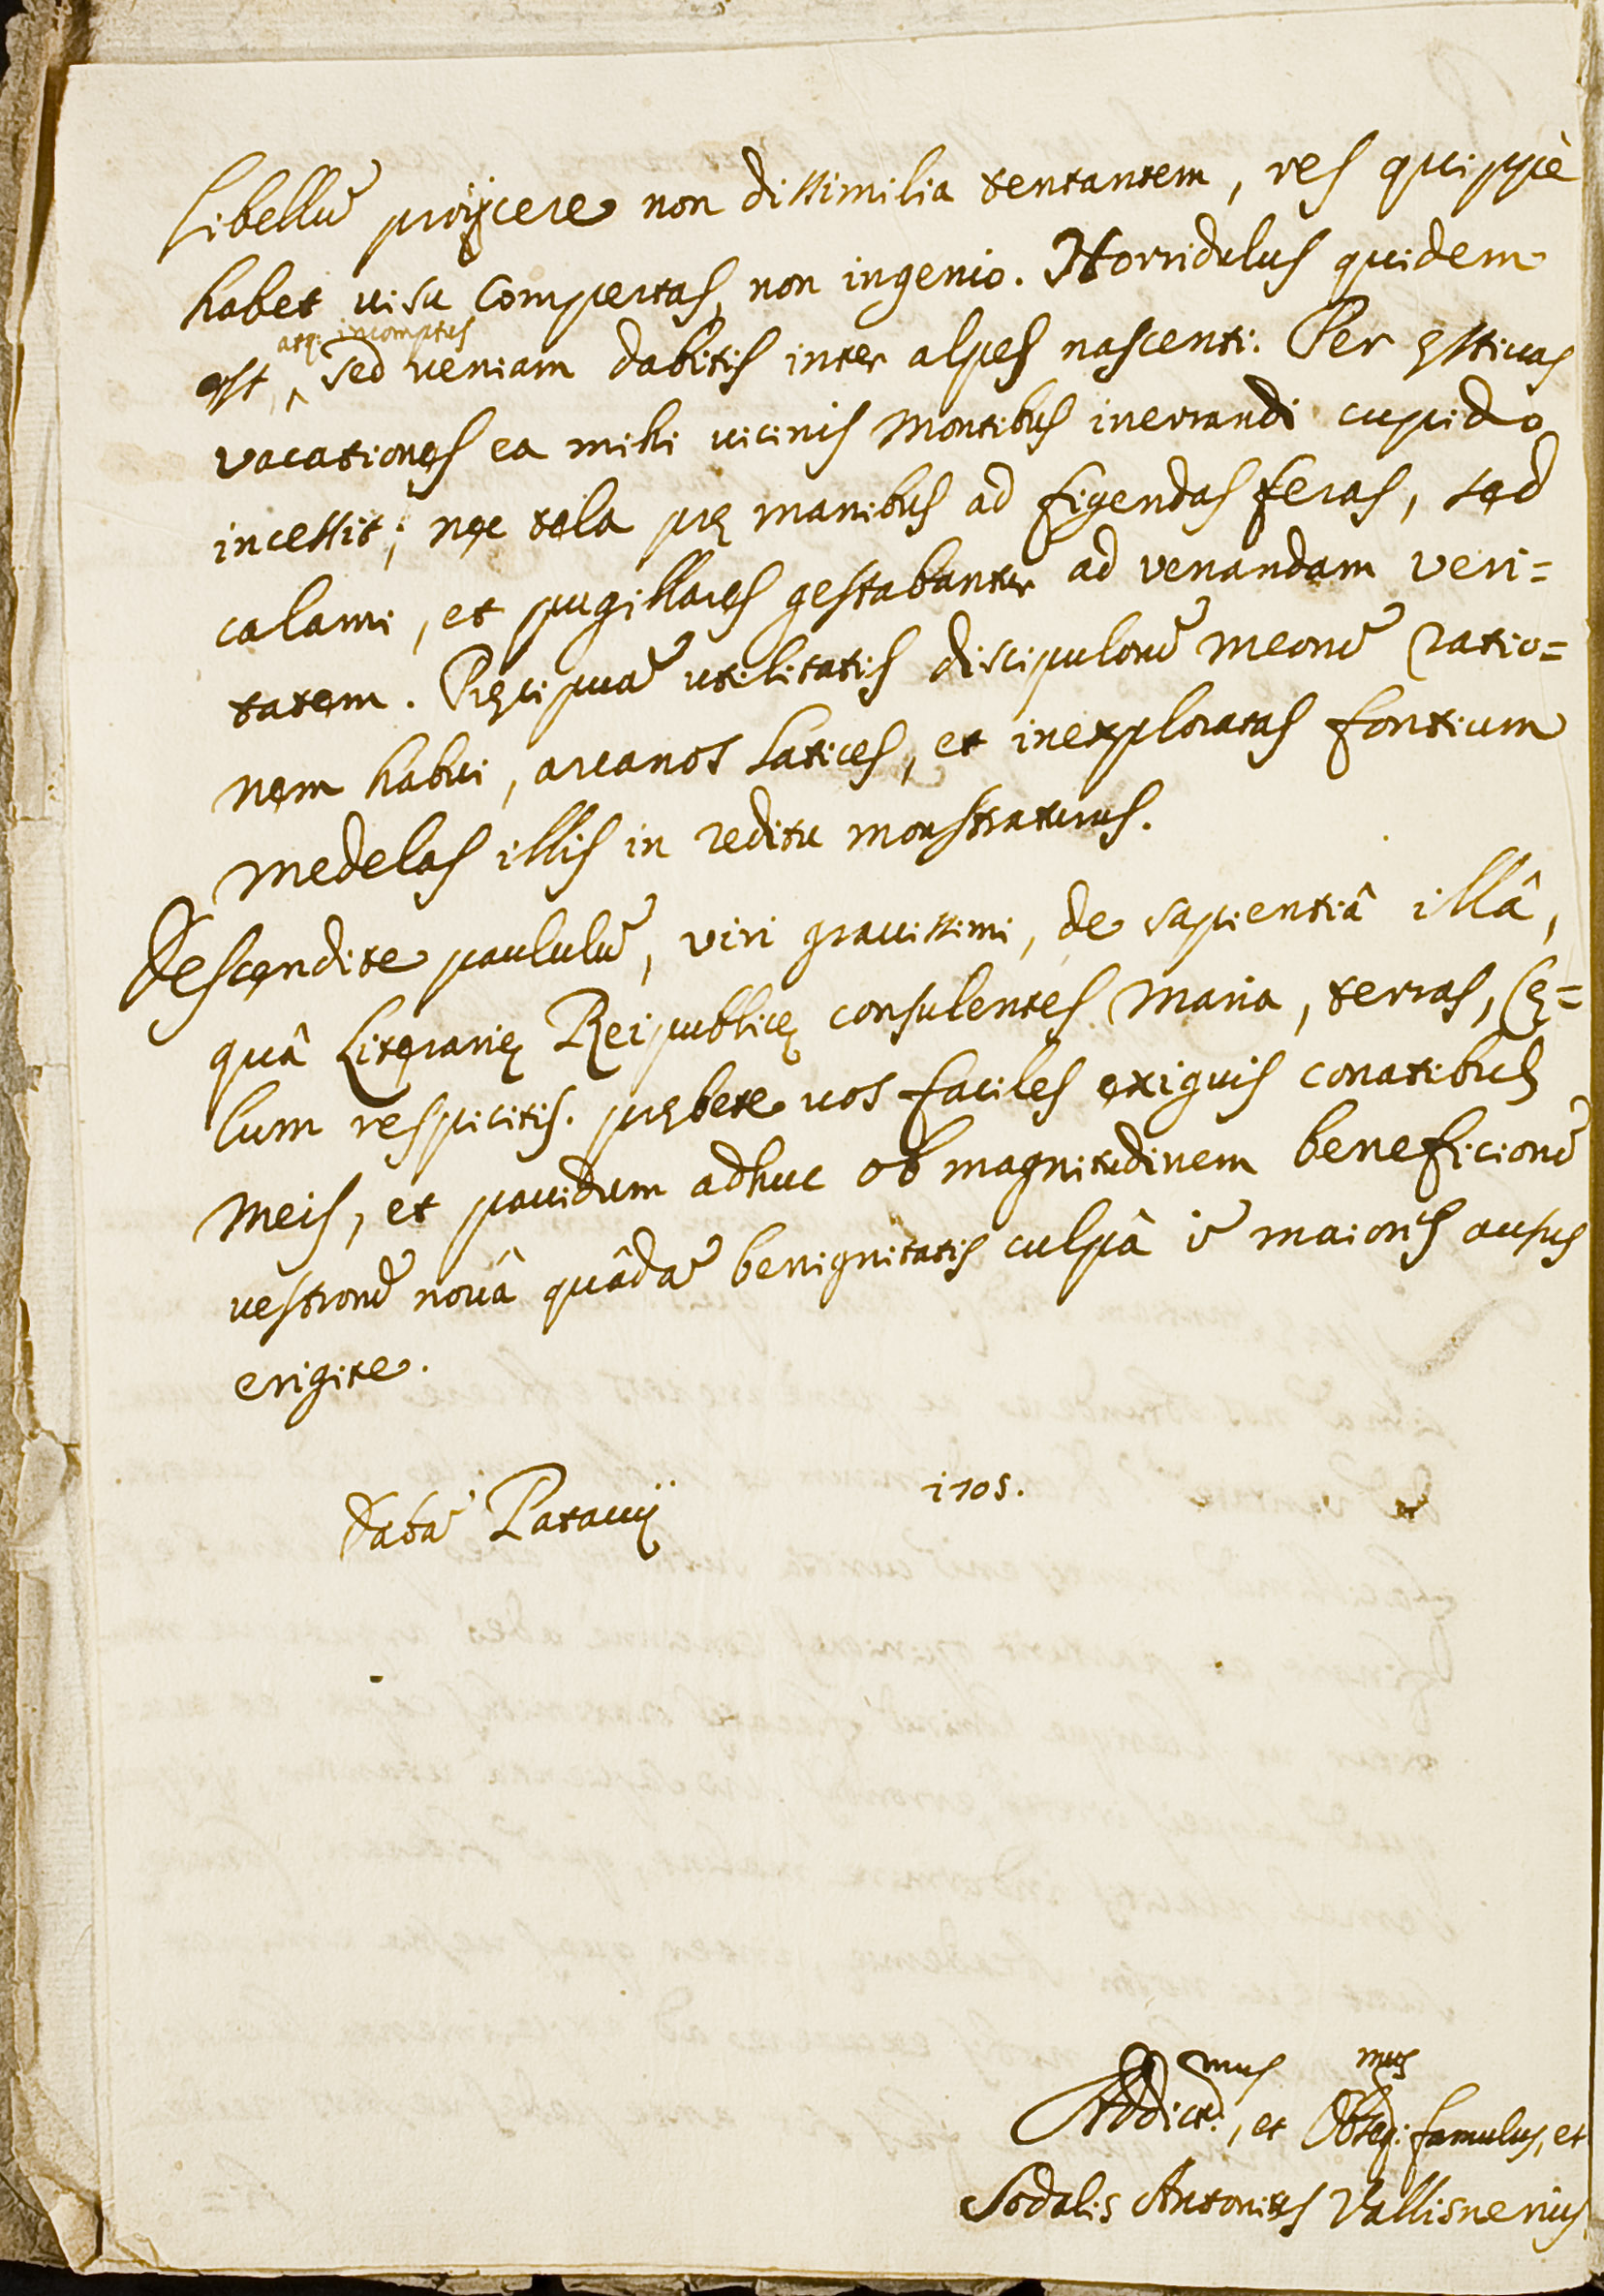 Libellũ proijcere non dissimilia tentantem, res quippè
habet uisu compertas, non ingenio. Horridulus quidem
atq; incomptus
est, ^ sed ueniam dabitis inter alpes nascenti. Per ęstiuas
vacationes ea mihi uicinis montibus inerrandi cupido
incessit; nec tela prę manibus ad figendas feras, sed
calami, et pugillares gestabantur ad venandam veri=
tatem. Pręcipuã utilitatis discipulorũ meorũ ratio=
nem habui, arcanos latices, et inexploratas fontium
medelas illis in reditu monstraturus.
Descendite paululũ, viri grauissimi, de sapientiâ illâ,
quâ Literarię Reipublicę consulentes maria, terras, Cę=
lum respicitis. prębete uos faciles exiguis conatibus
meis, et pauidum adhuc ob magnitudinem beneficiorũ
uestrorũ nouâ quâdã benignitatis culpâ ĩ maioris ausus
erigite.
Databã Patauij 1705.
mus mus
Addict:, et Obseq: famulus, et
Sodalis Antonius Vallisnerius